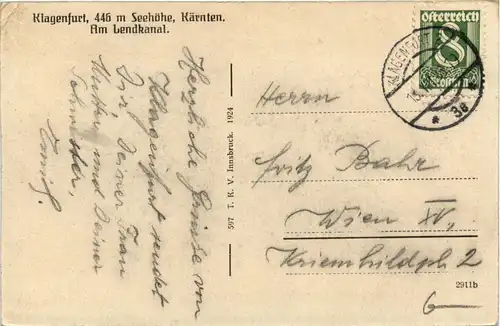 Klagenfurt, 446 m Seehöhe, Kärnten.
Am Lendkanal.
Herzliche Grüße von
Klagenfurt sendet
Dir, Deiner Frau
Mutter und Deiner
Schwester,
597 T. K. V. Innsbruck. 1924
österreich
8
Groschen
KLAGENFURT
* 3a *
Herrn
Fritz Bahr
Wien XV,
Kriemhildpl 2
2911b
6